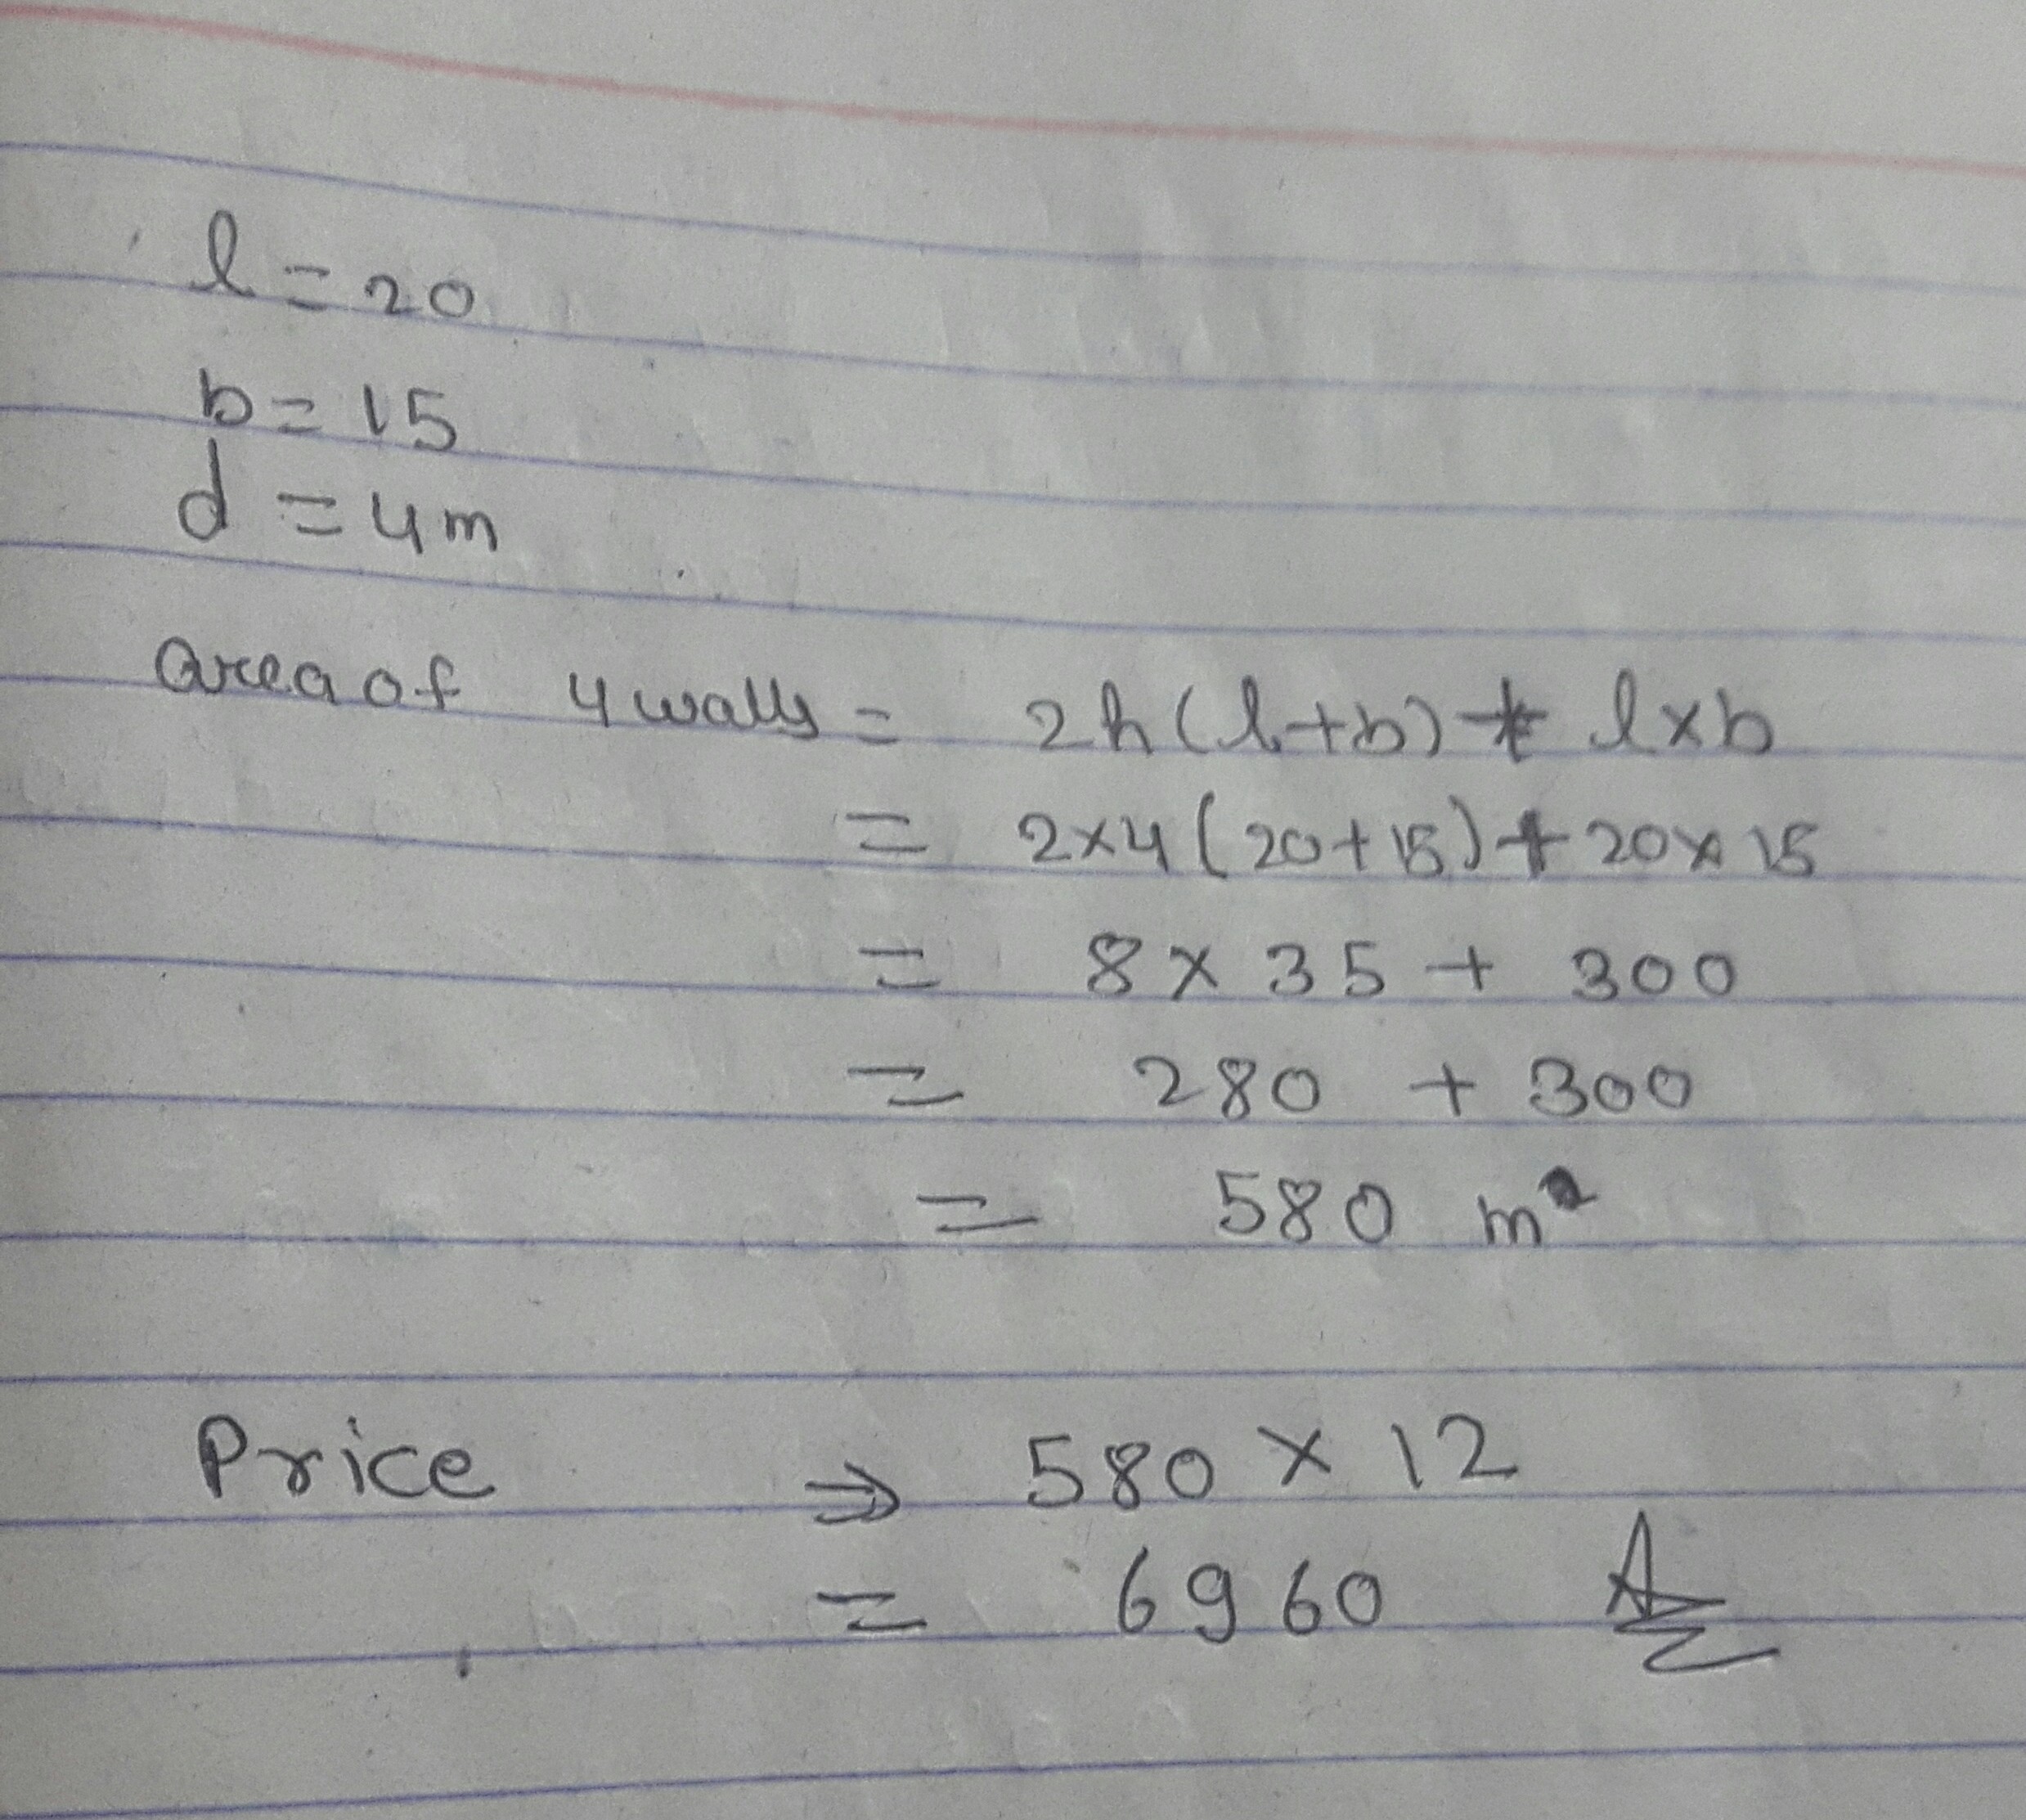 l = 20
b = 15
d = 4m
Area of 4 walls = 2h(l+b) + l×b
= 2×4(20+15)+20×15
= 8×35 + 300
= 280 + 300
= 580 m²
Price ⇒ 580 × 12
= 6960